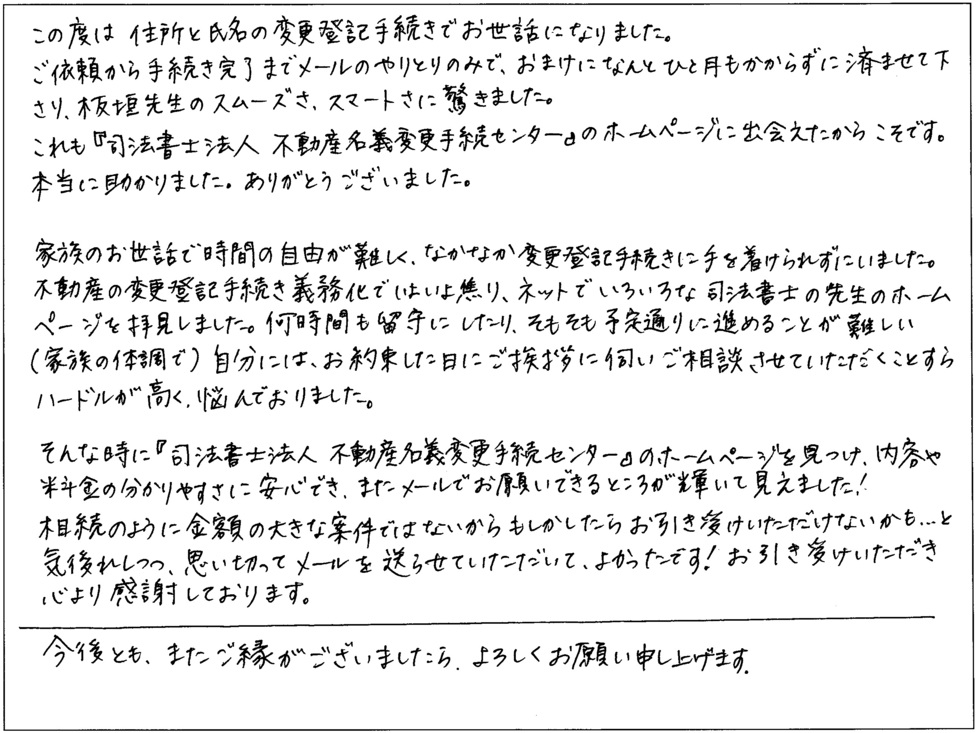 この度は 住所と氏名の変更登記手続きでお世話になりました。
ご依頼から手続き完了までメールのやりとりのみで、おまけになんとひと月もかからずに済ませて下
さり、板垣先生のスムーズさ、スマートさに驚きました。
これも『司法書士法人 不動産名義変更手続センター』のホームページに出会えたからこそです。
本当に助かりました。ありがとうございました。
家族のお世話で時間の自由が難しく、なかなか変更登記手続きに手を着けられずにいました。
不動産の変更登記手続き義務化でいよいよ焦り、ネットでいろいろな司法書士の先生のホーム
ページを拝見しました。何時間も留守にしたり、そもそも予定通りに進めることが難しい
(家族の体調で)自分には、お約束した日にご挨拶に伺いご相談させていただくことすら
ハードルが高く、悩んでおりました。
そんな時に『司法書士法人 不動産名義変更手続センター』のホームページを見つけ、内容や
料金の分かりやすさに安心でき、またメールでお願いできるところが輝いて見えました!
相続のように金額の大きな案件ではないからもしかしたらお引き受けいただけないかも…と
気後れしつつ、思い切ってメールを送らせていただいて、よかったです!お引き受けいただき
心より感謝しております。
今後とも、またご縁がございましたら、よろしくお願い申し上げます。